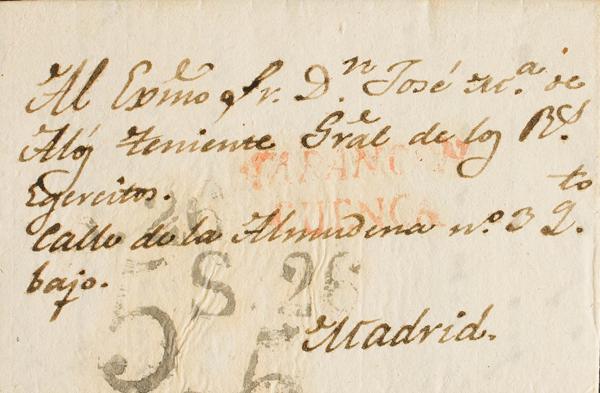 Al Exmo Sr. Dn José Ma. de
Alós teniente Gral de los Rs.
Egercitos.
TARANCON
CUENCA
Calle de la Almudena no. 3 Qto
bajo.
S. 26
5
5
Madrid.